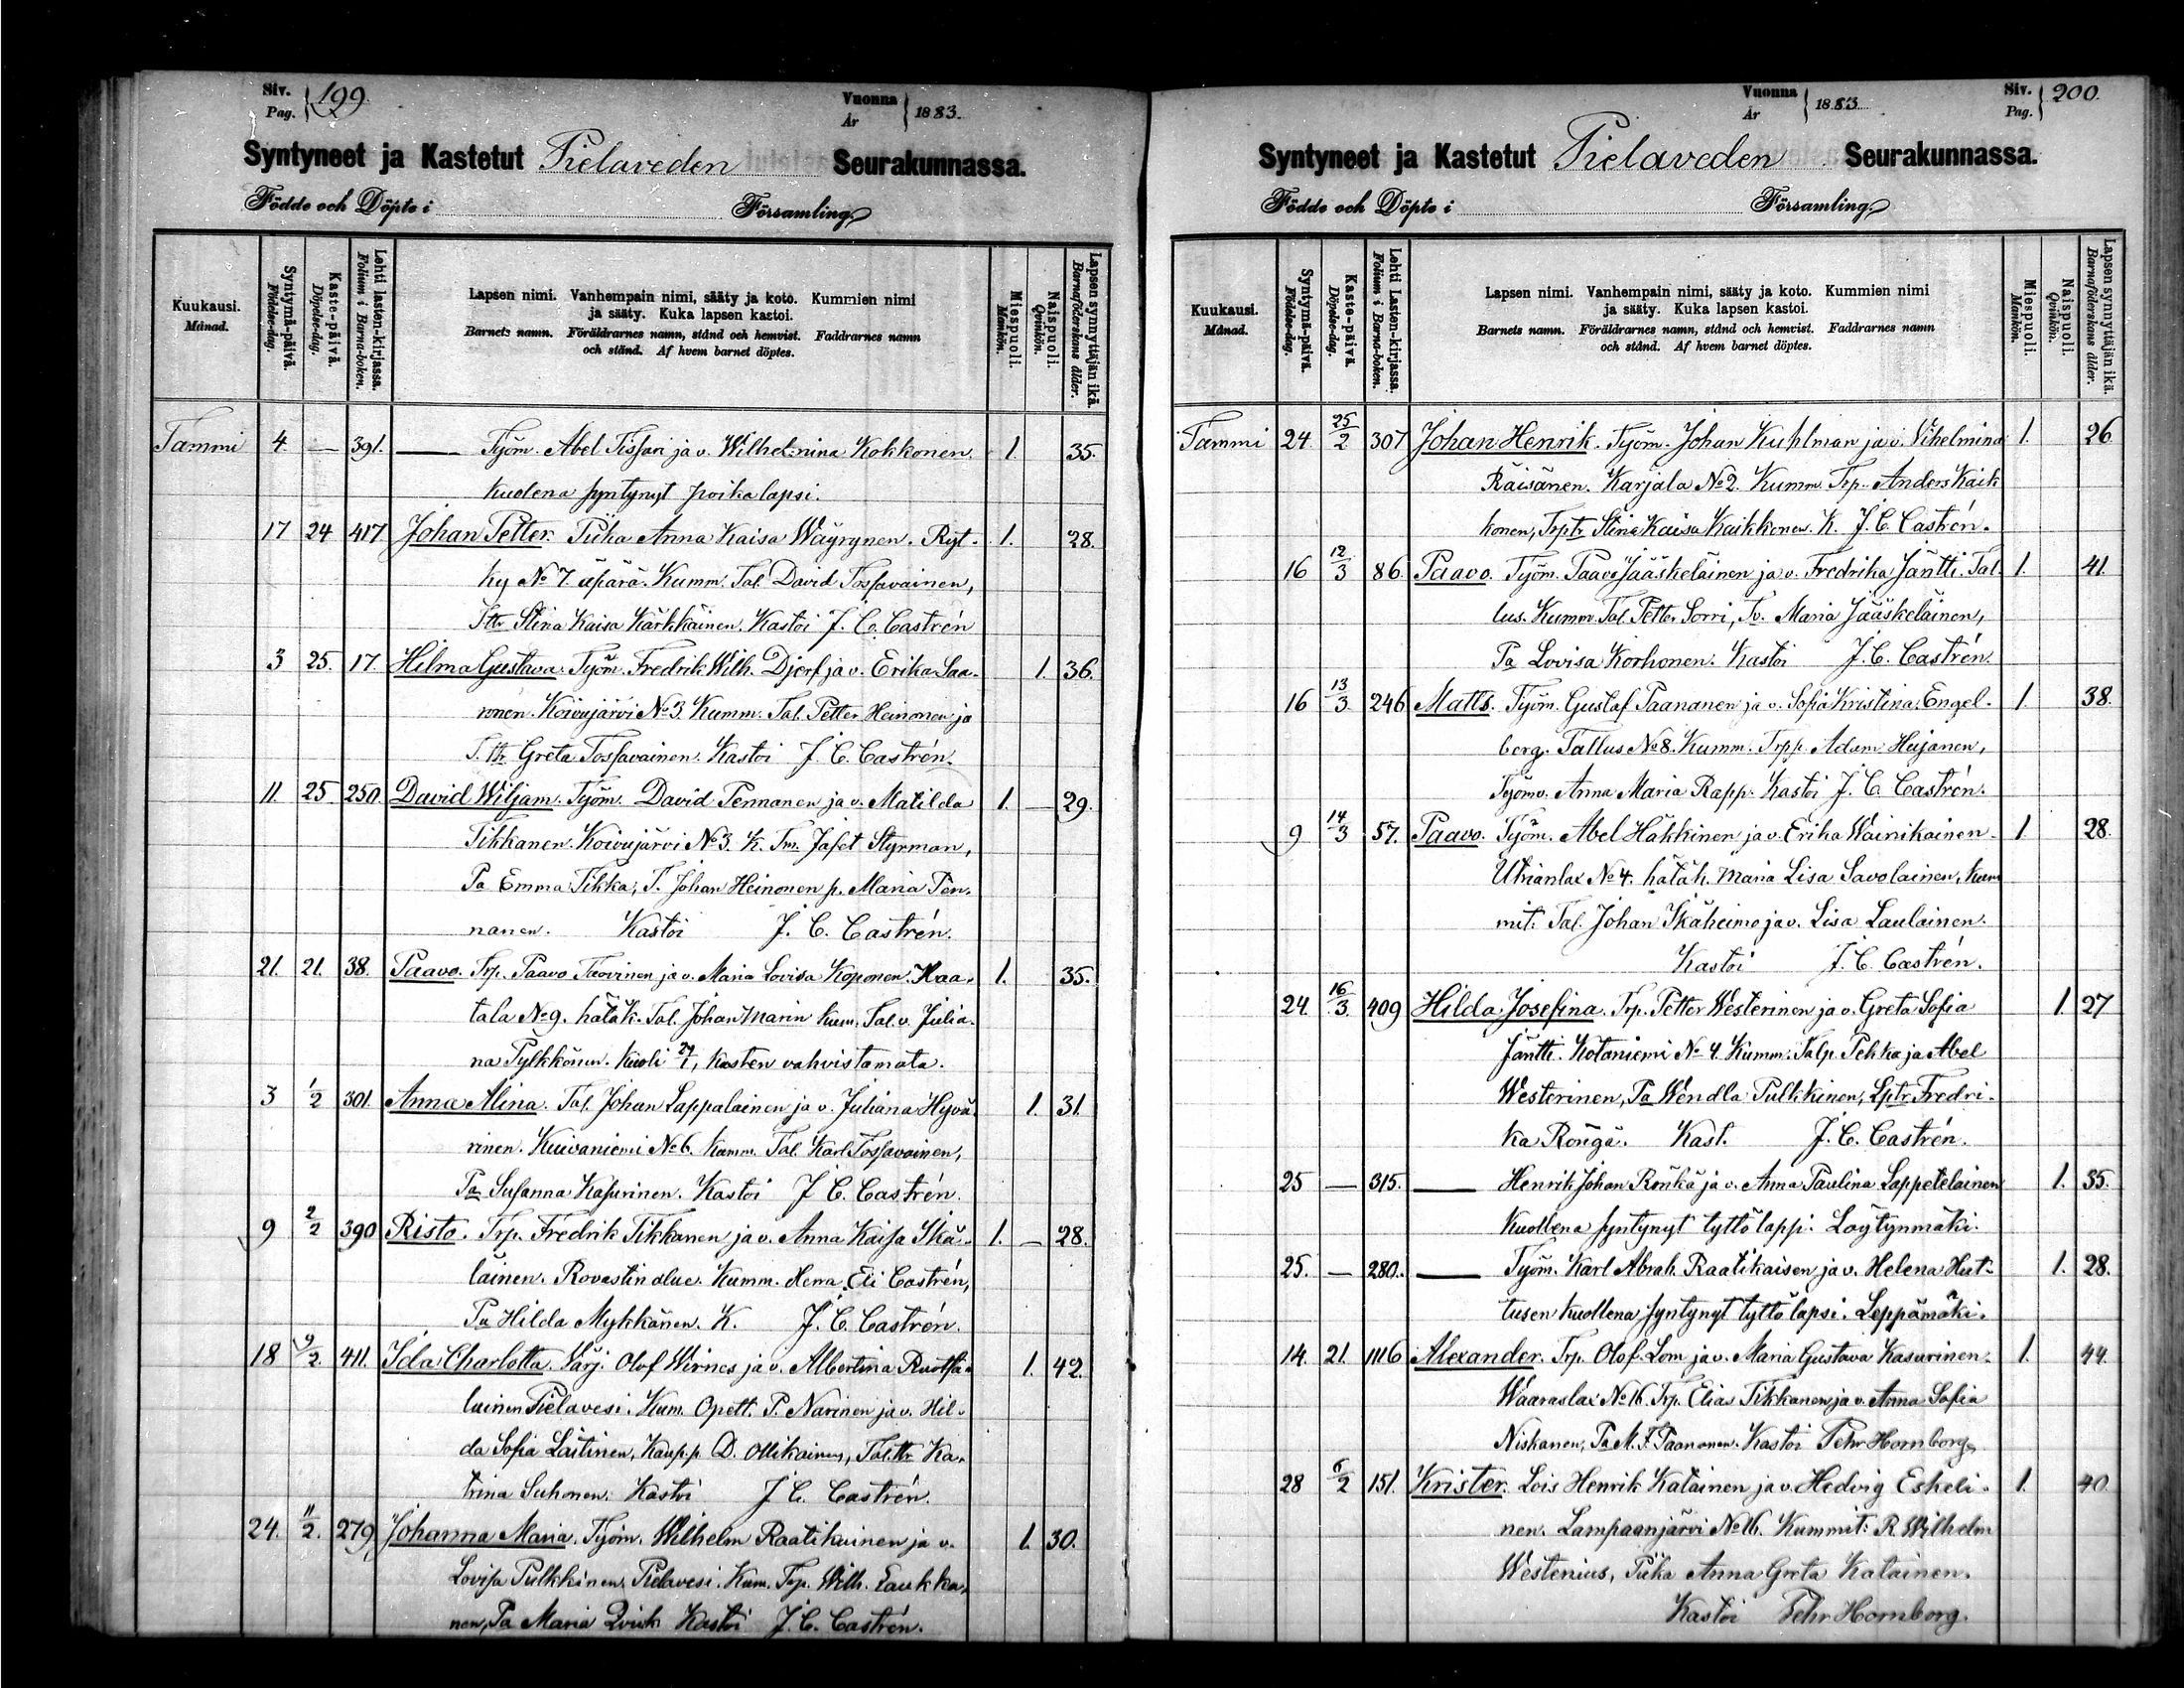 Siv. Pag. 199.
Vuonna År 1883.
Syntyneet ja Kastetut Pielaveden Seurakunnassa.
Födde och Döpte i Församling.
Kuukausi. Månad.
Syntymä-päivä. Födelse-dag.
Kaste-päivä. Döpelse-dag.
Lehti lasten-kirjassa. Folium i Barna-boken.
Lapsen nimi. Vanhempain nimi, sääty ja koto. Kummien nimi
ja sääty. Kuka lapsen kastoi.
Barnets namn. Föräldrarnes namn, stånd och hemvist. Faddrarnes namn
och stånd. Af hvem barnet döptes.
Miespuoli. Mankön.
Naispuoli. Qvinkön.
Lapsen synnyttäjän ikä. Barnaföderskans ålder.
Tammi 4. — 391. — Työm. Abel Tissari ja v. Wilhelmina Kokkonen. 1. 35.
kuolena syntynyt poikalapsi.
17 24 417 Johan Petter. Piika Anna Kaisa Wäyrynen. Ryt- 1. 28.
ky No 7. äpärä. Kumm. Tal. David Tossavainen,
Ttr Stina Kaisa Kärkkäinen. Kastoi J. C. Castrén
3 25. 17. Hilma Gustava. Työm. Fredrik Wilh. Djerf ja v. Erika Saa- 1. 36.
ronen. Koivujärvi No 3. Kumm. Tal. Petter Heinonen ja
T. ttr Greta Tossavainen. Kastoi J. C. Castrén.
11. 25. 250. David Wiljam. Työm. David Pennanen ja v. Matilda 1. — 29.
Tikkanen. Koivujärvi No 3. K. Tm. Jafet Styrman,
Pa Emma Tikka, T. Johan Heinonen p. Maria Pen-
nanen. Kastoi J. C. Castrén.
21. 21. 38. Paavo. Trp. Paavo Taavinen ja v. Maria Lovisa Koponen. Haa- 1. 35.
tala No 9. hätäk. Tal. Johan Marin kum. Tal. v. Julia-
na Pylkkönen. kuoli 24/1, kasten vahvistamata.
3 1/2 301. Anna Alina. Tal. Johan Lappalainen ja v. Juliana Hyvä- 1. 31.
rinen. Kuivaniemi No 6. kumm. Tal. Karl Tossavainen,
Pa Susanna Kasurinen. Kastoi J. C. Castrén.
9 2/2 390 Risto. Trp. Fredrik Tikkanen ja v. Anna Kaisa Ikä- 1. — 28.
läinen. Rovastin alue. Kumm. Herra Eli Castrén,
Pa Hilda Mykkänen. K. J. C. Castrén.
18 9/2. 411. Ida Charlotta. Värj. Olof Wirnes ja v. Albertina Ruotsa- 1. 42.
lainen Pielavesi. Kum. Opett. P. Narinen ja v. Hil-
da Sofia Laitinen, Kaup. p. D. Ollikainen, Tal. ttr Ka-
trina Suhonen. Kastoi J. C. Castrén.
24. 11/2. 279 Johanna Maria. Työm. Wilhelm Raatikainen ja v. 1. 30.
Lovisa Pulkkinen. Pielavesi. Kum. Trp. Wilh. Laukka-
nen, Pa Maria Qvick Kastoi J. C. Castrén.
Vuonna År 1883.
Siv. Pag. 200.
Syntyneet ja Kastetut Pielaveden Seurakunnassa.
Födde och Döpte i Församling.
Kuukausi. Månad.
Syntymä-päivä. Födelse-dag.
Kaste-päivä. Döpelse-dag.
Lehti Lasten-kirjassa. Folium i Barna-boken.
Lapsen nimi. Vanhempain nimi, sääty ja koto. Kummien nimi
ja sääty. Kuka lapsen kastoi.
Barnets namn. Föräldrarnes namn, stånd och hemvist. Faddrarnes namn
och stånd. Af hvem barnet döptes.
Miespuoli. Mankön.
Naispuoli. Qvinkön.
Lapsen synnyttäjän ikä. Barnaföderskans ålder.
Tammi 24. 25/2 307 Johan Henrik. Työm. Johan Kuhlman ja v. Vilhelmina 1. 26.
Räisänen. Karjala No 2. Kumm. Trp. Anders Kaik
konen, Trp tr. Stina Kaisa Kaikkonen. K. J. C. Castrén.
16 12/3 86. Paavo. Työm. Paavo Jääskeläinen ja v. Fredrika Jäntti. Tal- 1. 41.
lus. Kumm. Tal. Petter Sorri, Tv. Maria Jääskeläinen,
Pa Lovisa Korhonen. Kastoi J. C. Castrén.
16 13/3. 246 Matts. Työm. Gustaf Paananen ja v. Sofia Kristina Engel- 1. 38.
berg. Tallus No 8. Kumm. Trp p. Adam Hujanen,
Työm v. Anna Maria Rapp. Kastoi J. C. Castrén.
9 14/3 57. Paavo. Työm. Abel Häkkinen ja v. Erika Wainikainen. 1. 28.
Utrianlax No 4. hätäk. Maria Lisa Savolainen, kum
mit: Tal. Johan Ikäheimo ja v. Lisa Laulainen.
Kastoi J. C. Castrén.
24. 16/3. 409 Hilda Josefina. Trp. Petter Westerinen ja v. Greta Sofia 1. 27
Jäntti. Kotaniemi No 4. Kumm. Tal p. Pekka ja Abel
Westerinen, Pa Wendla Pulkkinen, Lptr. Fredri-
ka Rönga. Kast. J. C. Castrén.
25 — 315. — Henrik Johan Rönkä ja v. Anna Paulina Lappeteläinen 1. 35.
kuollena syntynyt tyttö lapsi. Löytynmäki.
25. — 280. — Työm. Karl Abrah. Raatikaisen ja v. Helena Hut- 1. 28.
tusen kuollena syntynyt tyttö lapsi. Leppämäki.
14. 21. 1116 Alexander. Trp. Olof Lom ja v. Maria Gustava Kasurinen. 1. 44.
Waaraslax No 16. Trp. Elias Tikkanen ja v. Anna Sofia
Niskanen, Pa M. F. Paananen. Kastoi Fehr Hornborg.
28 6/2 151. Krister. Lois Henrik Katainen ja v. Hedvig Eskeli- 1. 40.
nen. Lampaanjärvi No 16. Kummit: R. Wilhelm
Westenius, Piika Anna Greta Katainen.
Kastoi Fehr Hornborg.